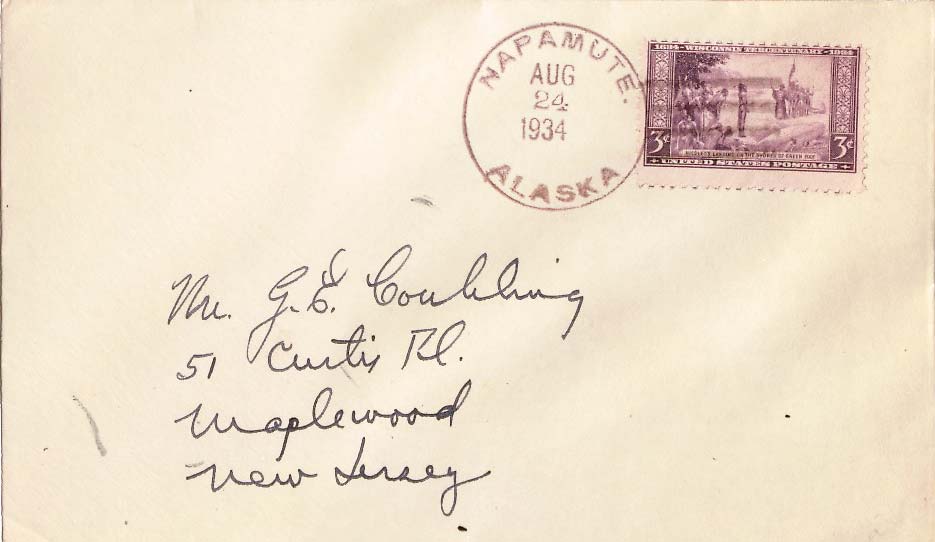 NAPAMUTE.
AUG
24
1934
ALASKA
1634-WISCONSIN TERCENTENARY-1934
3¢ 3¢
NICOLET'S LANDING ON THE SHORES OF GREEN BAY
UNITED STATES POSTAGE
Mr. G.E. Conkling
51 Curtis Pl.
Maplewood
New Jersey